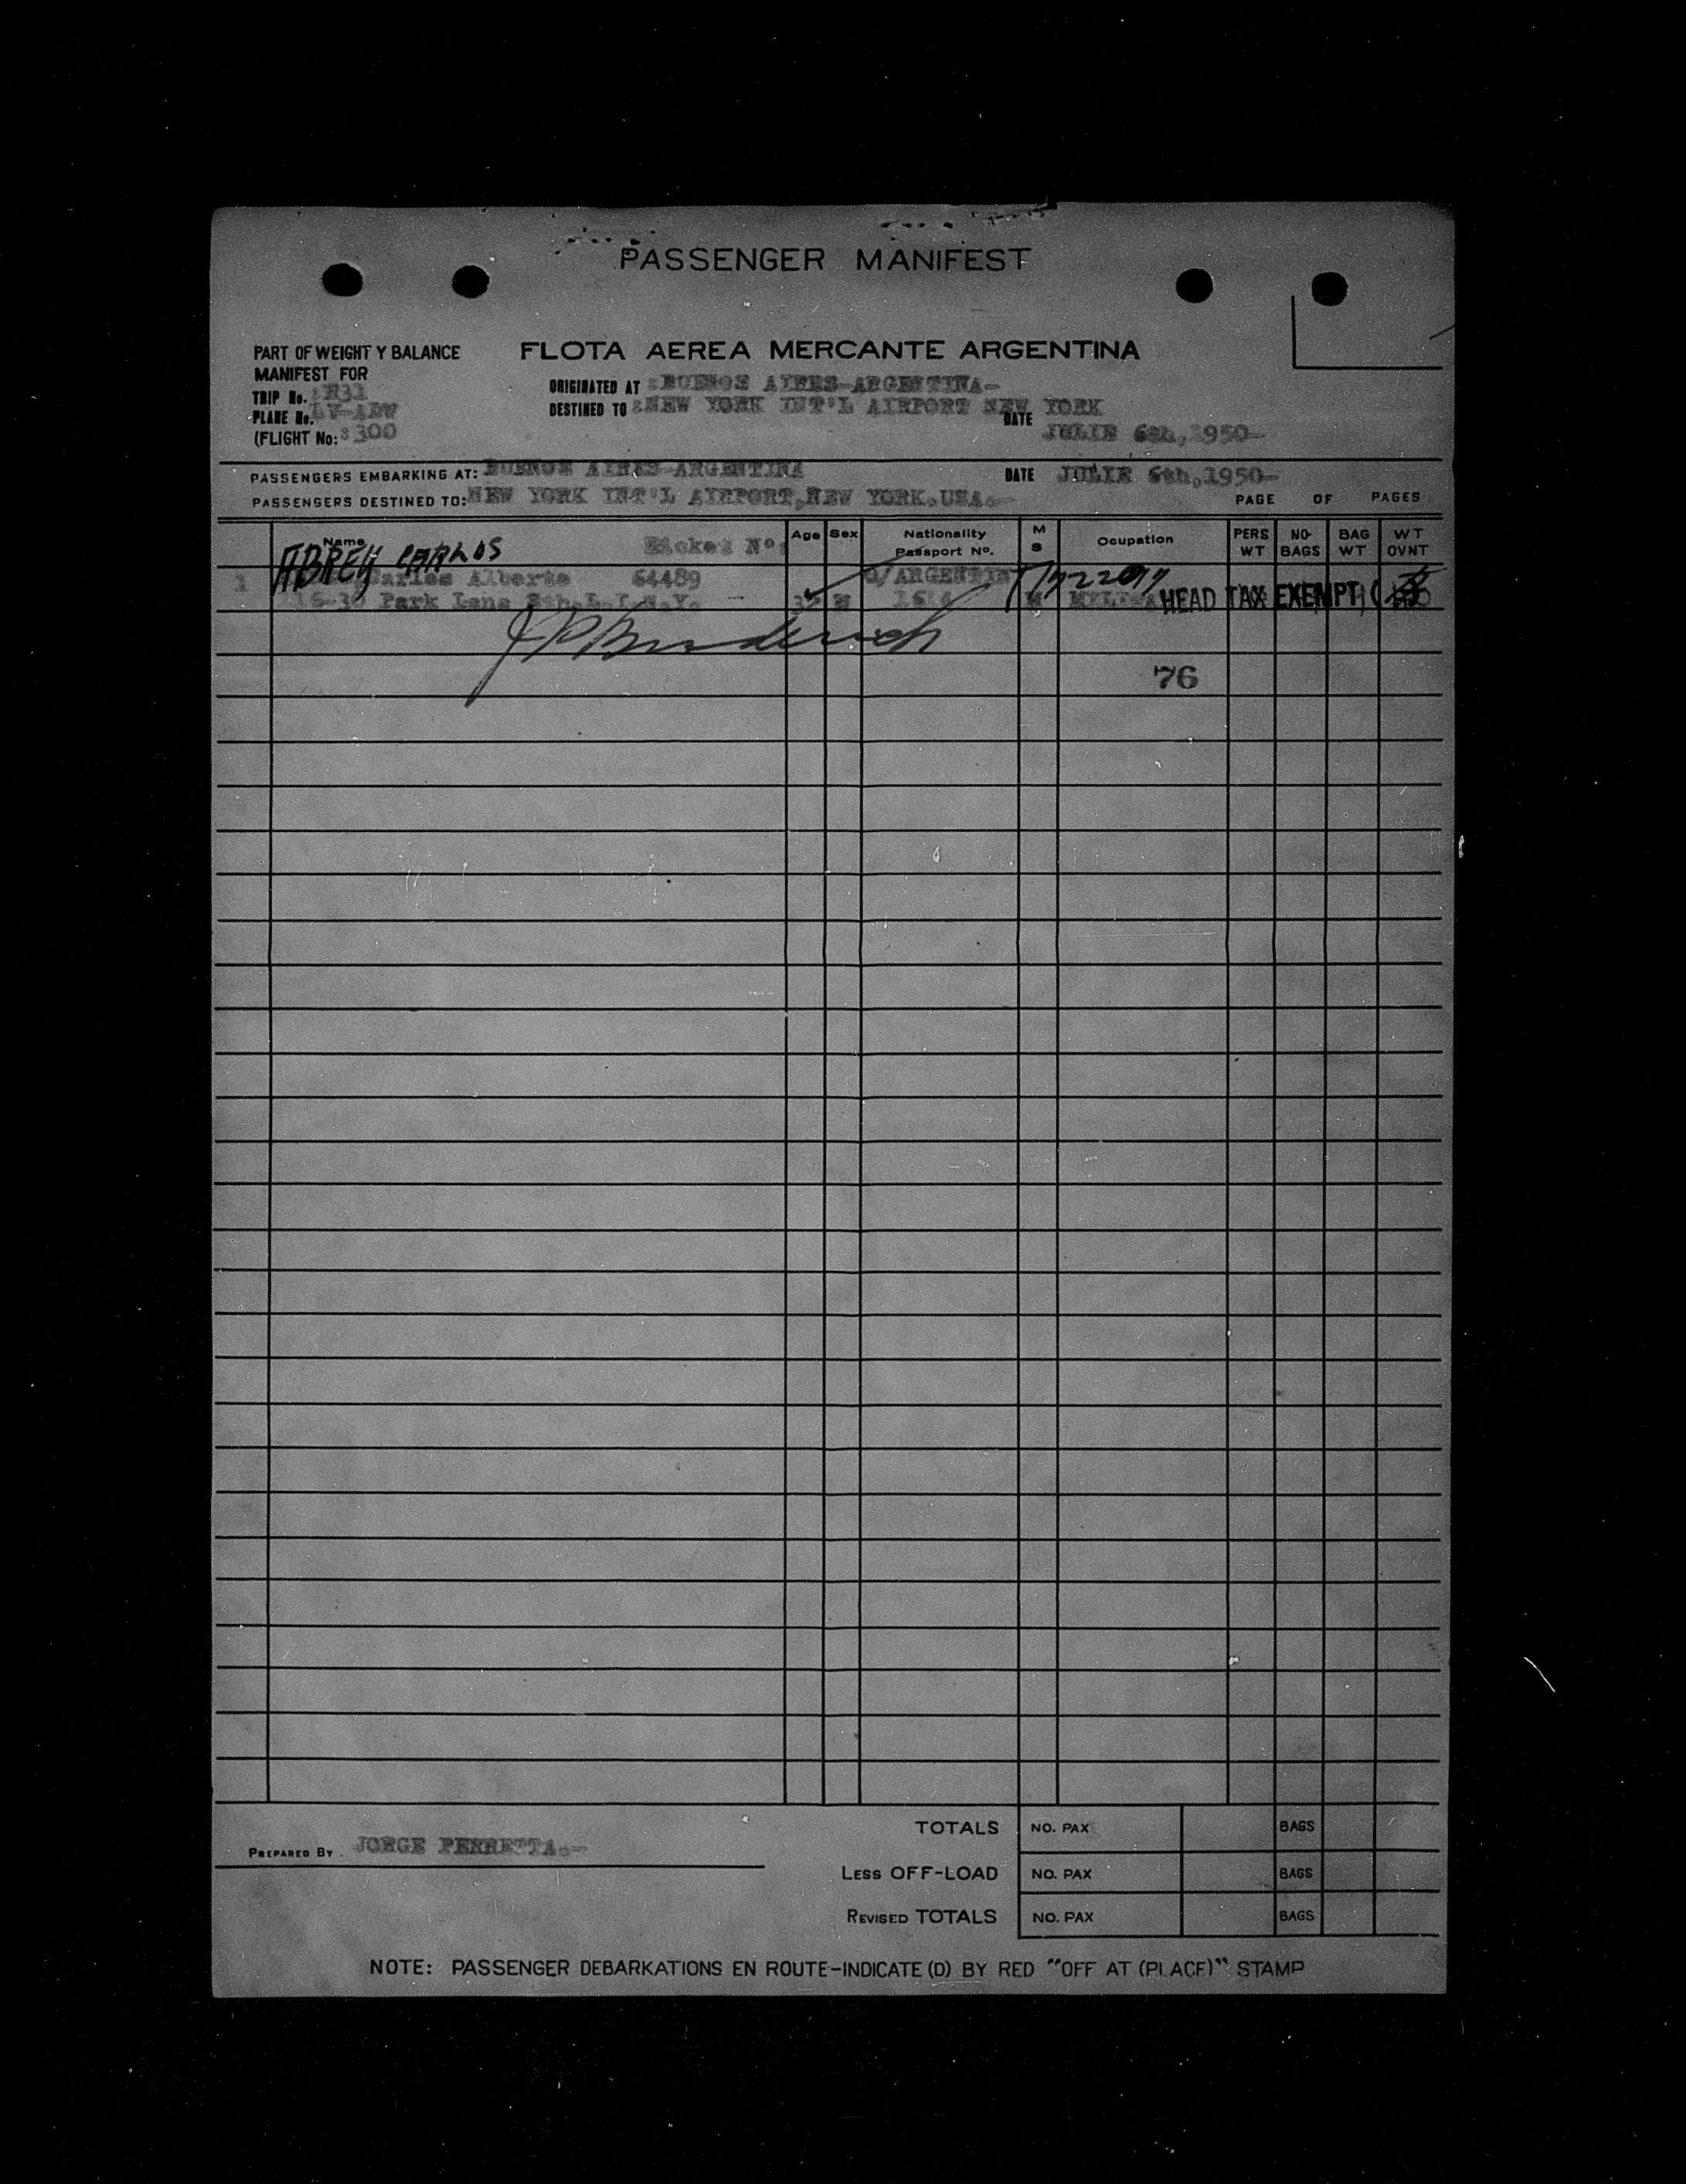 PASSENGER MANIFEST
PART OF WEIGHT Y BALANCE
MANIFEST FOR
TRIP No.
PLANE No. LV-ADW
(FLIGHT No: 300
FLOTA AEREA MERCANTE ARGENTINA
ORIGINATED AT :BUENOS AIRES-ARGENTINA-
DESTINED TO :NEW YORK INT'L AIRPORT NEW YORK
DATE
JULIE 6th,1950-
PASSENGERS EMBARKING AT: BUENOS AIRES-ARGENTINA DATE JULIE 6th,1950-
PASSENGERS DESTINED TO: NEW YORK INT'L AIRPORT,NEW YORK.USA.- PAGE OF PAGES
Name Ticket Nº: Age Sex Nationality Passport Nº. M S Ocupation PERS WT NO- BAGS BAG WT WT OVNT
ABREU CARLOS
1 Carlos Alberto 64489 ARGENTIN
Park Lane N.Y. M HEAD TAX EXEMPT
76
TOTALS NO. PAX BAGS
PREPARED BY. JORGE PERRETTA.-
LESS OFF-LOAD NO. PAX BAGS
REVISED TOTALS NO. PAX BAGS
NOTE: PASSENGER DEBARKATIONS EN ROUTE-INDICATE (D) BY RED "OFF AT (PLACE)" STAMP